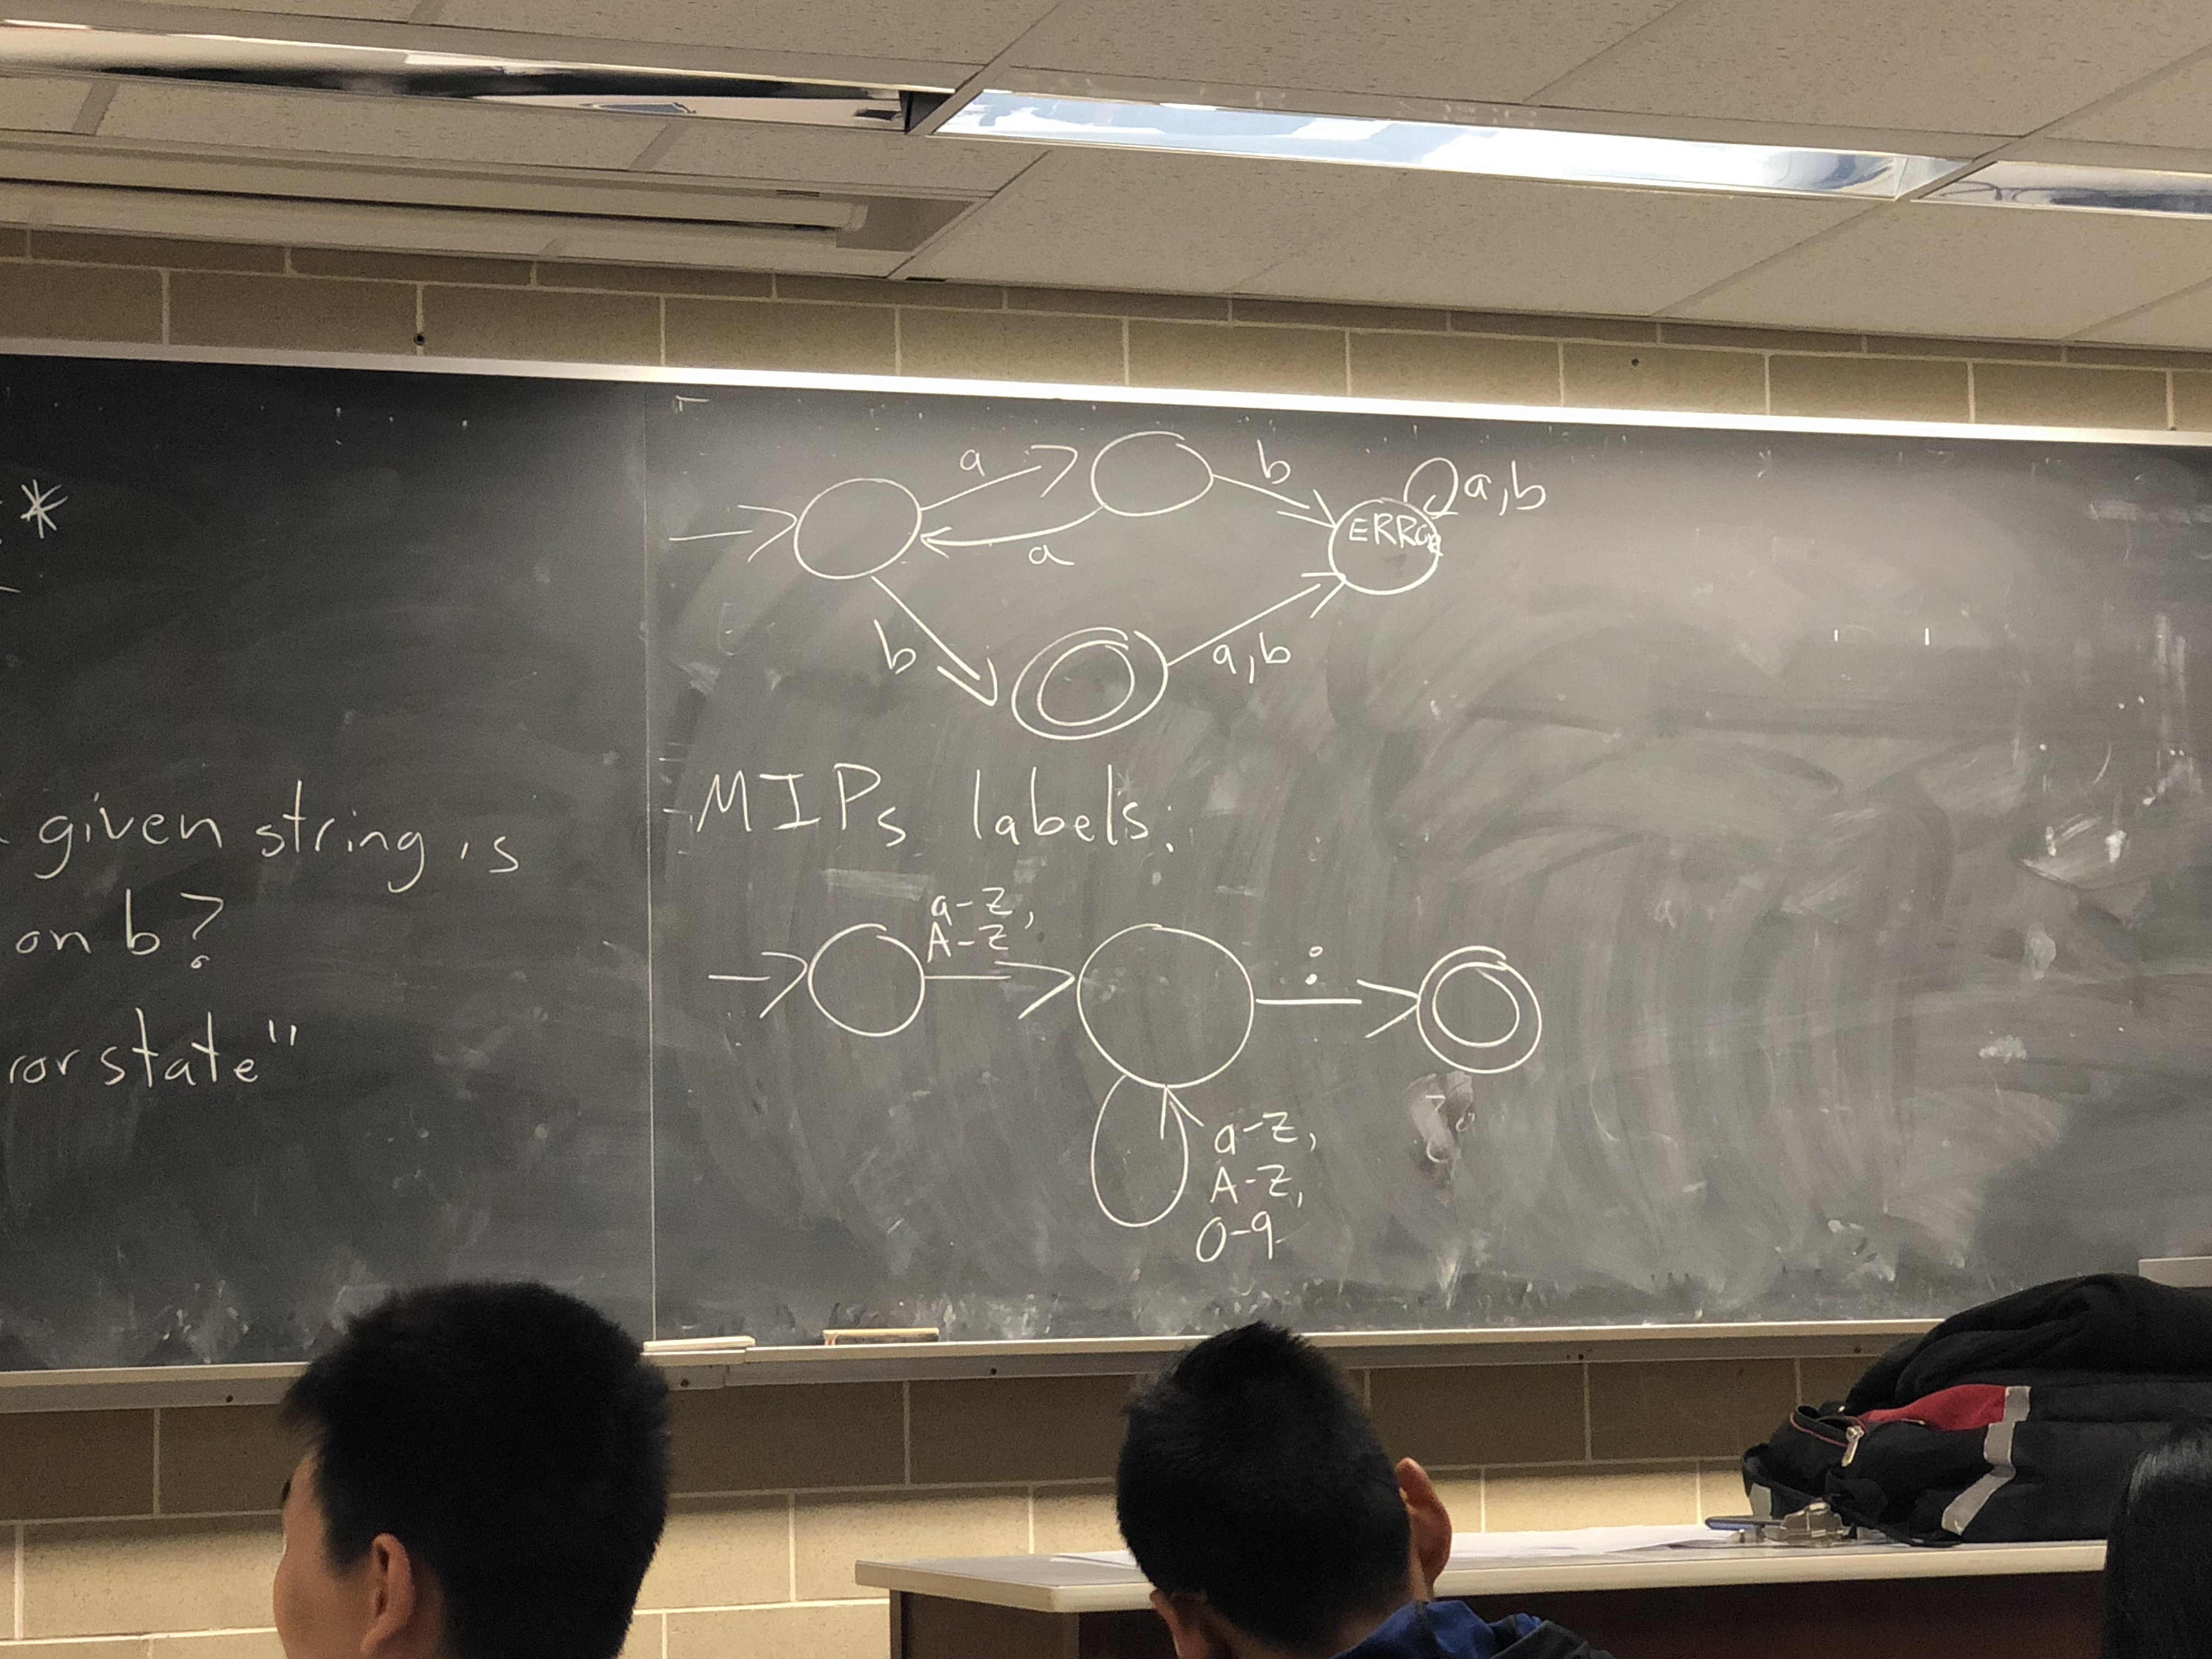 *
given string is
on b?
ror state"
a
b
a,b
ERROR
a
b
a,b
MIPs labels:
a-z,
A-Z
:
a-z,
A-Z,
0-9